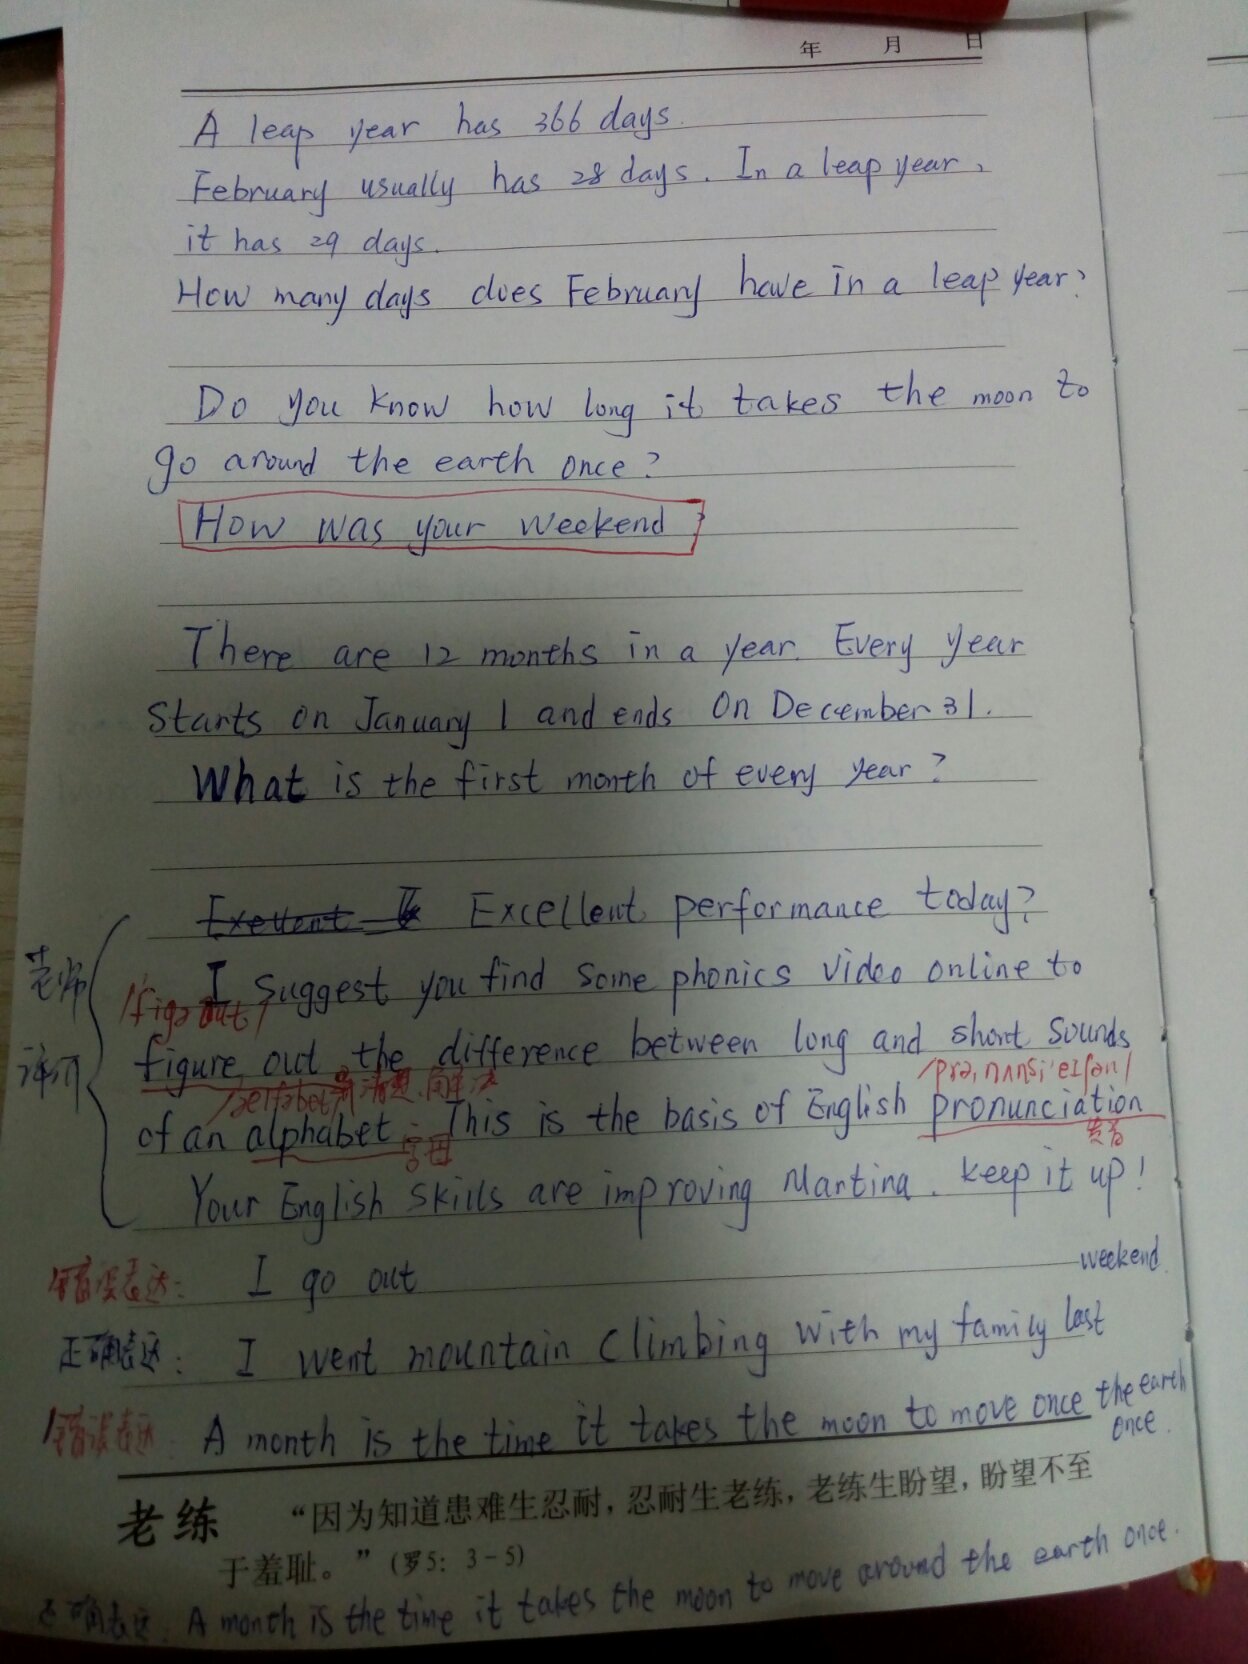 年 月 日
A leap year has 366 days.
February usually has 28 days. In a leap year,
it has 29 days.
How many days does February have in a leap year?
Do you know how long it takes the moon to
go around the earth once?
How was your weekend?
There are 12 months in a year. Every year
starts on January 1 and ends on December 31.
What is the first month of every year?
Excellent performance today?
老师
评词
I suggest you find some phonics video online to
figure out the difference between long and short sounds
of an alphabet. This is the basis of English pronunciation
字母
发音
Your English skills are improving Martina. keep it up!
错误表达: I go out
weekend
正确表达: I went mountain climbing with my family last
错误表达: A month is the time it takes the moon to move once the earth
once.
老练 “因为知道患难生忍耐，忍耐生老练，老练生盼望，盼望不至
于羞耻。”（罗5：3-5）
正确表达: A month is the time it takes the moon to move around the earth once.